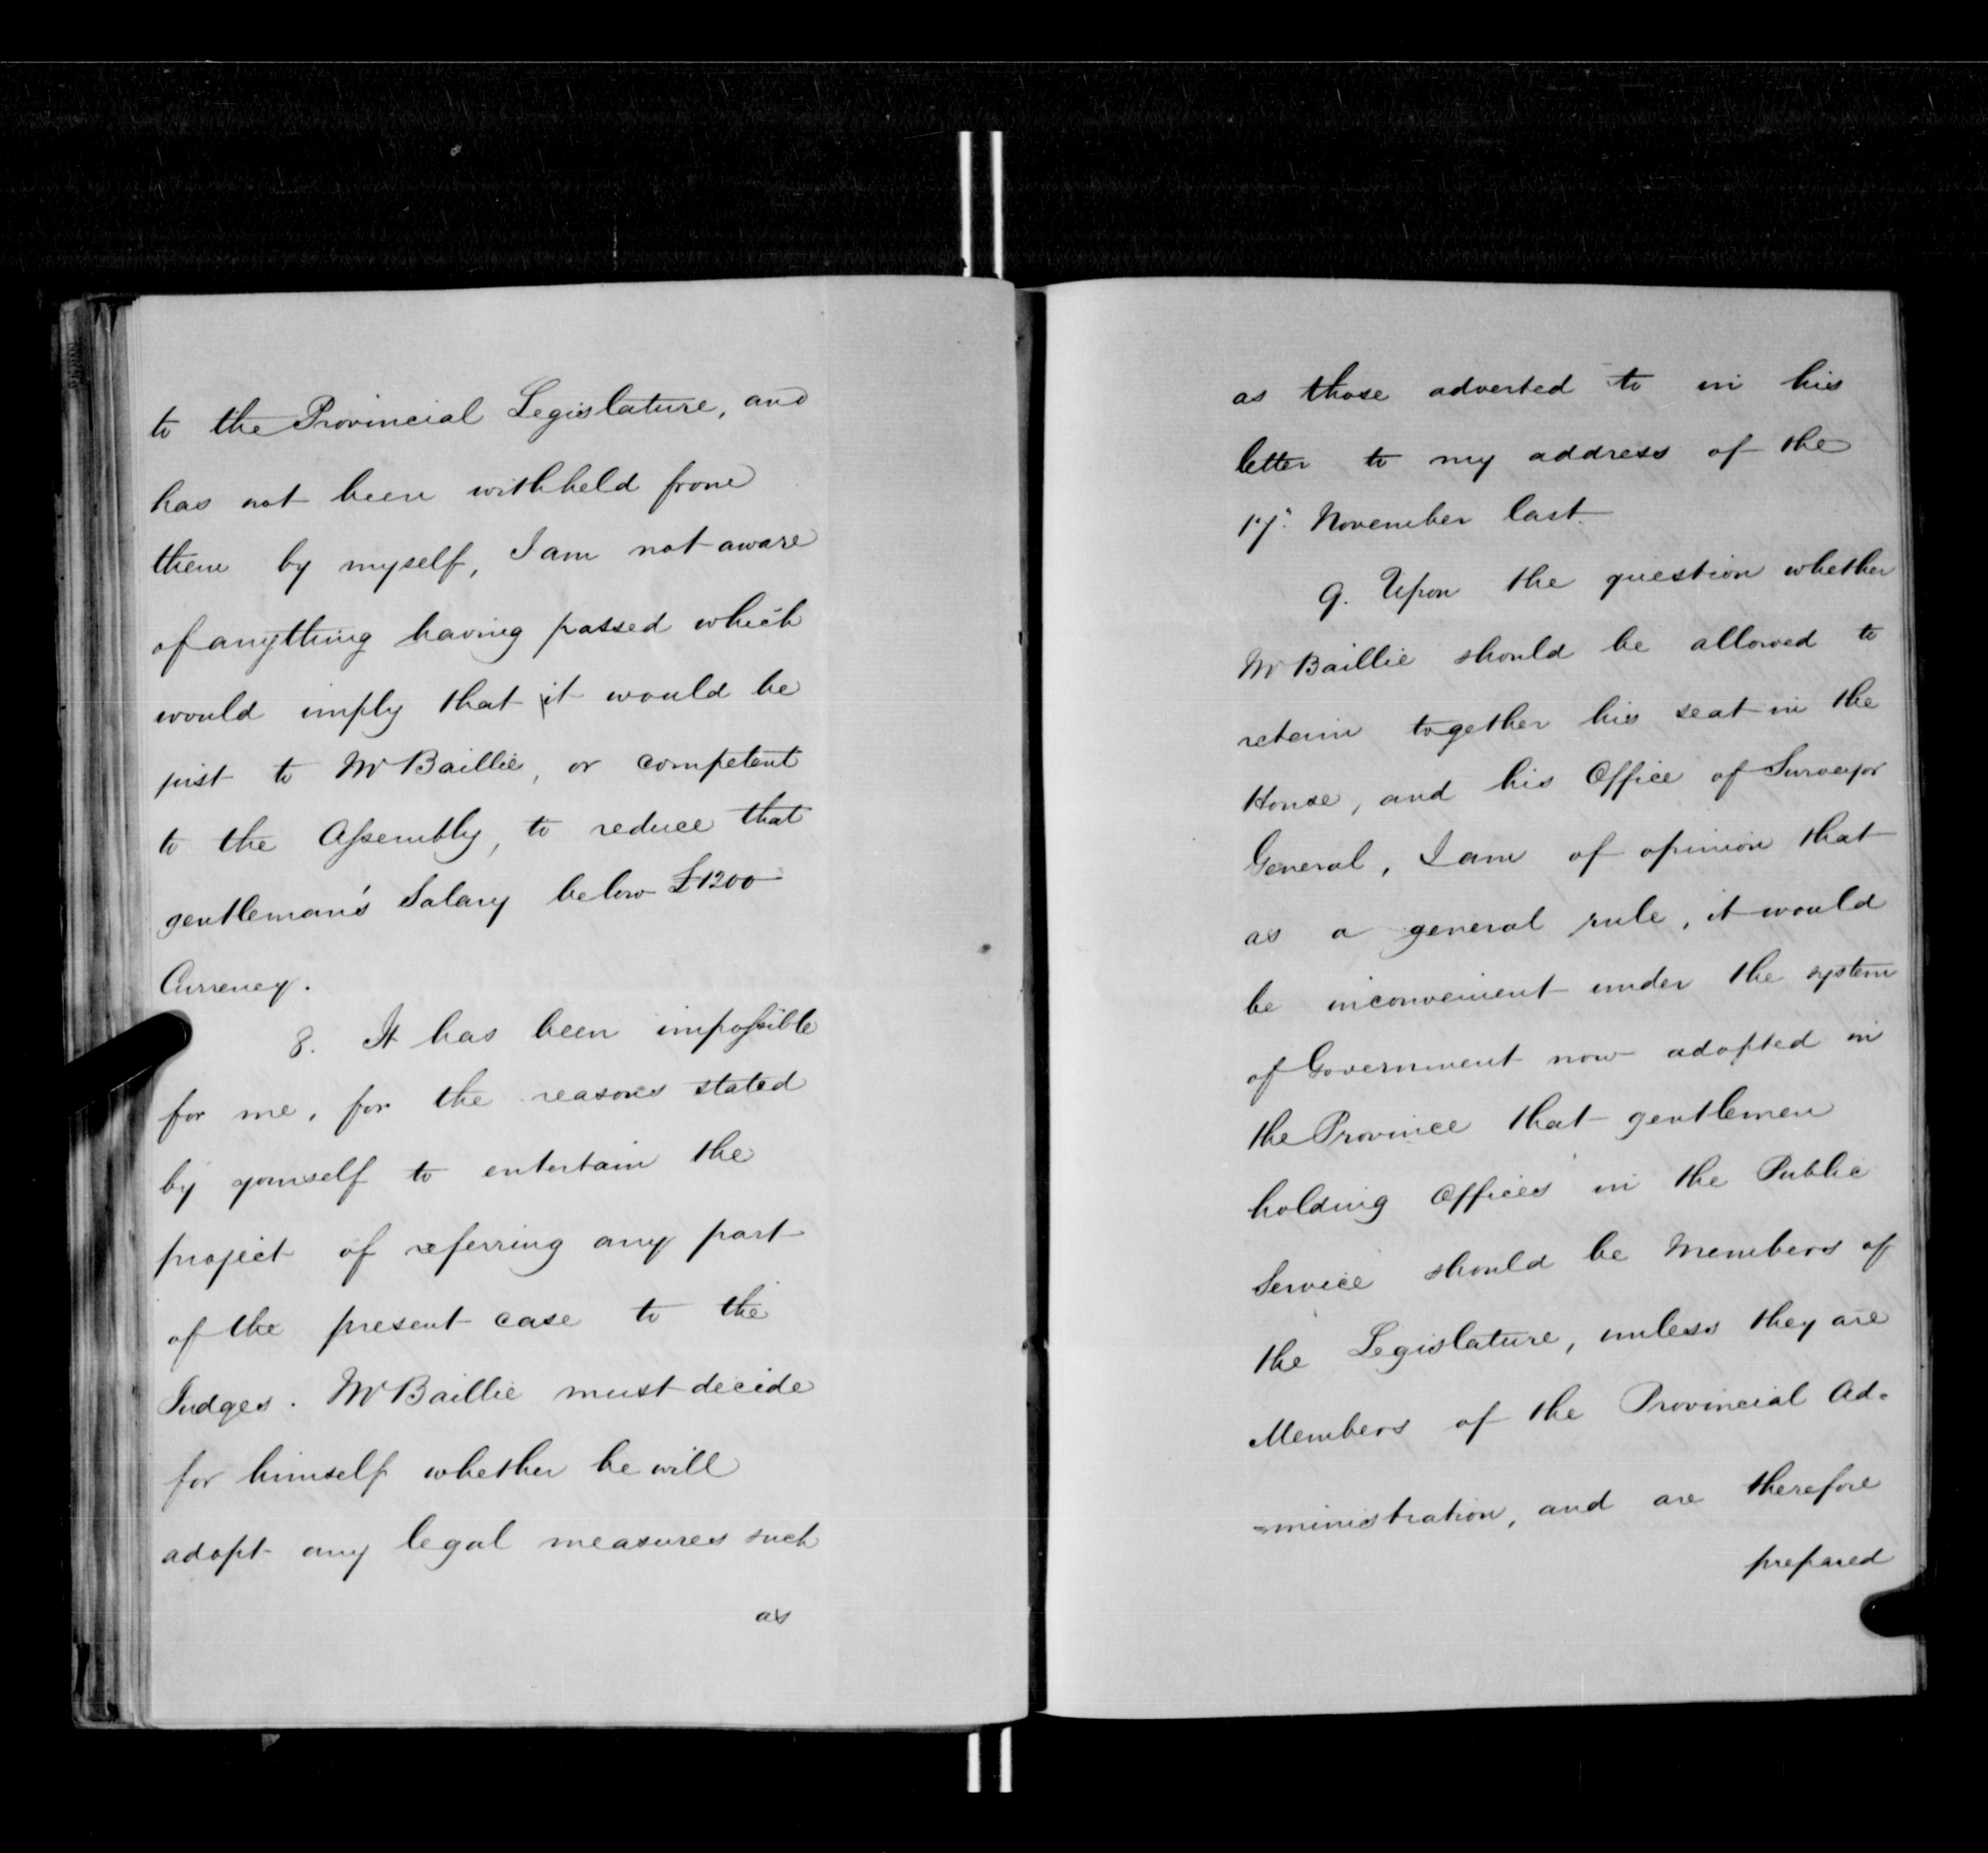 to the Provincial Legislature, and
has not been withheld from
them by myself, I am not aware
of anything having passed which
would imply that it would be
just to Mr Baillie, or competent
to the Assembly, to reduce that
gentleman's Salary below £1200
Currency.
8. It has been impossible
for me, for the reasons stated
by yourself to entertain the
project of referring any part
of the present case to the
Judges. Mr Baillie must decide
for himself whether he will
adopt any legal measures such
as
as those adverted to in his
letter to my address of the
17th November last.
9. Upon the question whether
Mr Baillie should be allowed to
retain together his seat in the
House, and his Office of Surveyor
General, I am of opinion that
as a general rule, it would
be inconvenient under the system
of Government now adopted in
the Province that gentlemen
holding Offices in the Public
Service should be Members of
the Legislature, unless they are
Members of the Provincial Ad=
=ministration, and are therefore
prepared